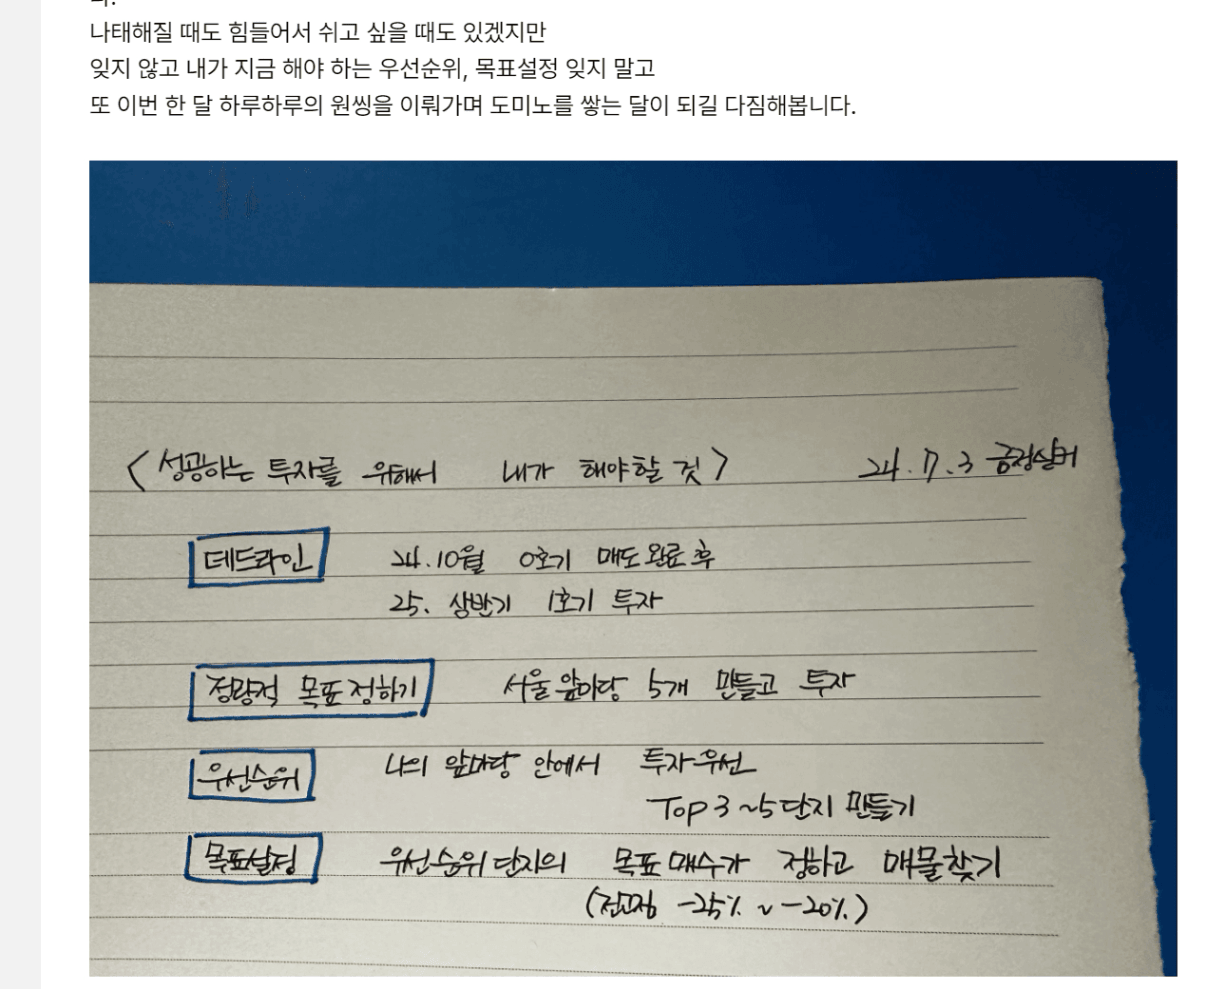 나태해질 때도 힘들어서 쉬고 싶을 때도 있겠지만
잊지 않고 내가 지금 해야 하는 우선순위, 목표설정 잊지 말고
또 이번 한 달 하루하루의 원씽을 이뤄가며 도미노를 쌓는 달이 되길 다짐해봅니다.
<성공하는 투자를 위해서 내가 해야할 것> 24.7.3 긍정실버
데드라인 24.10월 0호기 매도완료 후
25. 상반기 1호기 투자
정량적 목표정하기 서울앞마당 5개 만들고 투자
우선순위 나의 앞마당 안에서 투자우선
Top 3~5단지 만들기
목표설정 우선순위단지의 목표매수가 정하고 매물찾기
(전고점 -25% ~ -20%)